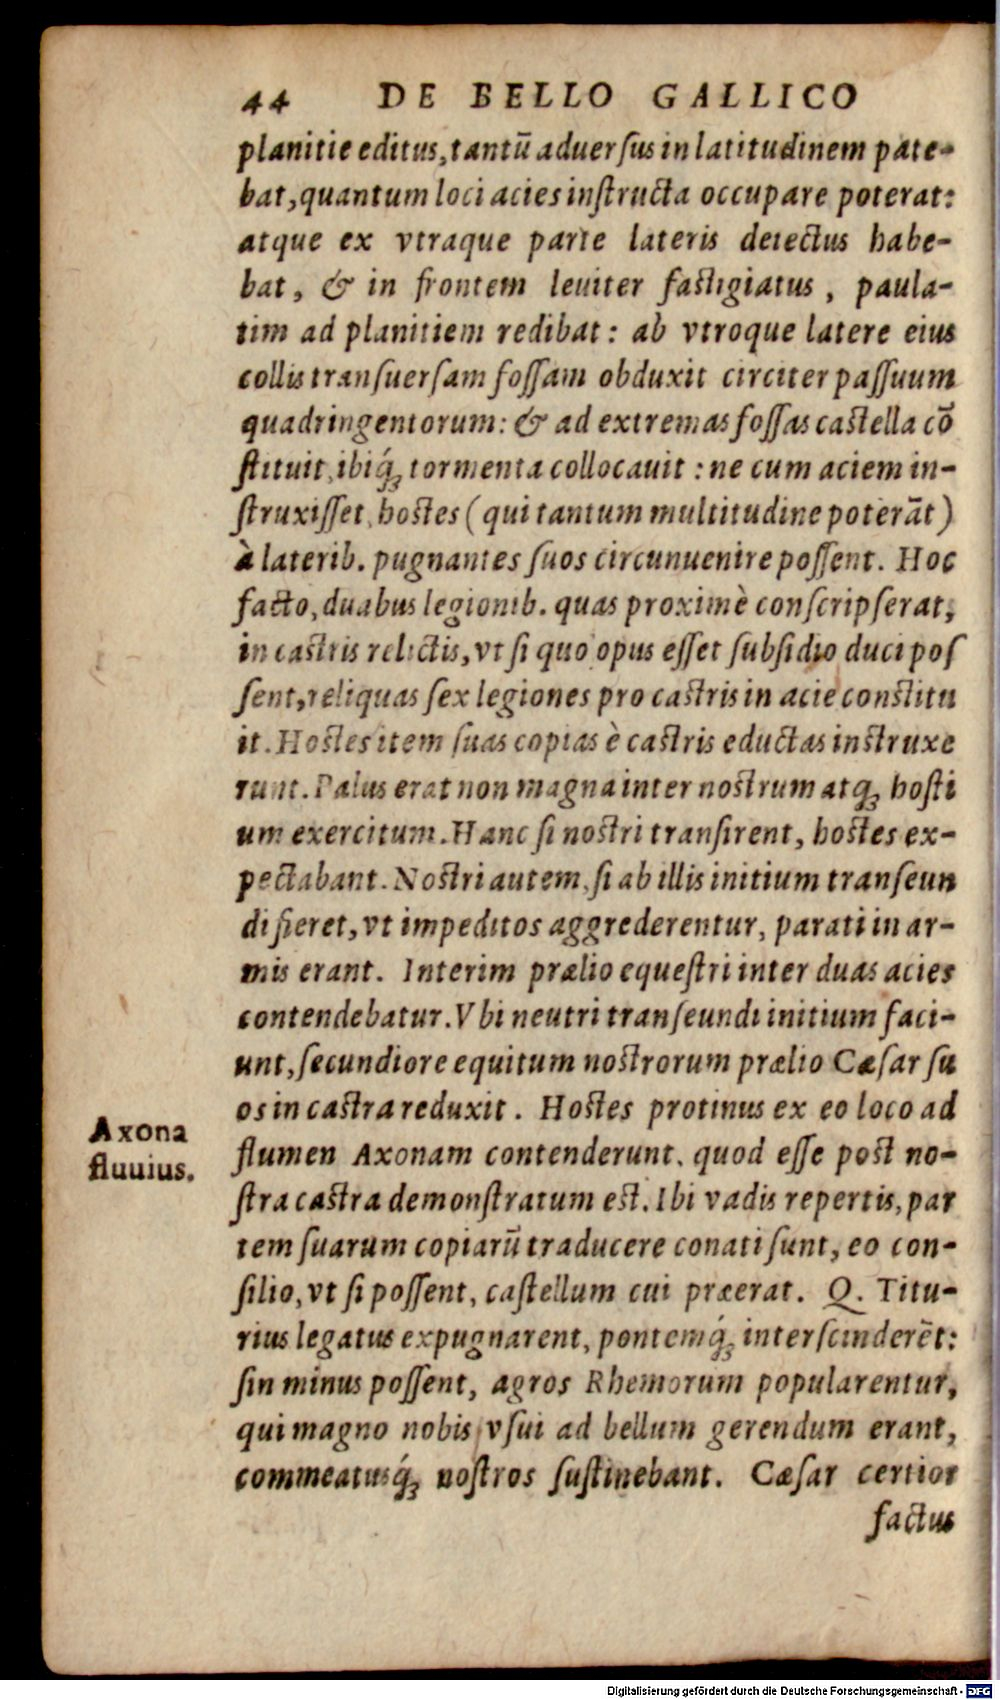 44 DE BELLO GALLICO
planitie editus, tantũ aduersus in latitudinem pate-
bat, quantum loci acies instructa occupare poterat:
atque ex vtraque parte lateris deiectus habe-
bat, & in frontem leuiter fastigiatus, paula-
tim ad planitiem redibat: ab vtroque latere eius
collis transuersam fossam obduxit circiter passuum
quadringentorum: & ad extremas fossas castella cõ
stituit, ibiq́; tormenta collocauit: ne cum aciem in-
struxisset, hostes (qui tantum multitudine poterãt)
à laterib. pugnantes suos circunuenire possent. Hoc
facto, duabus legionib. quas proximè conscripserat,
in castris relictis, vt si quo opus esset subsidio duci pos
sent, reliquas sex legiones pro castris in acie constitu
it. Hostes item suas copias è castris eductas instruxe
runt. Palus erat non magna inter nostrum atq; hosti
um exercitum. Hanc si nostri transirent, hostes ex-
pectabant. Nostri autem, si ab illis initium transeun
di fieret, vt impeditos aggrederentur, parati in ar-
mis erant. Interim prælio equestri inter duas acies
contendebatur. Vbi neutri transeundi initium faci-
unt, secundiore equitum nostrorum prælio Cæsar su
os in castra reduxit. Hostes protinus ex eo loco ad
Axona
fluuius.
flumen Axonam contenderunt. quod esse post no-
stra castra demonstratum est. Ibi vadis repertis, par
tem suarum copiarũ traducere conati sunt, eo con-
silio, vt si possent, castellum cui præerat. Q. Titu-
rius legatus expugnarent, pontemq́; interscinderẽt:
sin minus possent, agros Rhemorum popularentur,
qui magno nobis vsui ad bellum gerendum erant,
commeatusq́; nostros sustinebant. Cæsar certior
factus
Digitalisierung gefördert durch die Deutsche Forschungsgemeinschaft - DFG